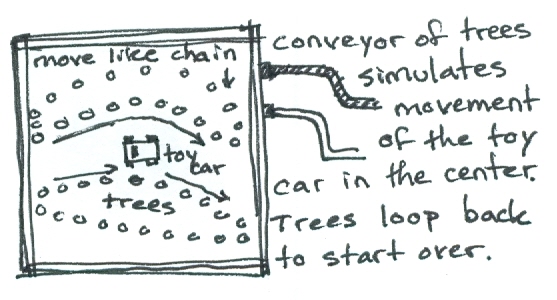 move like chain
toy
car
trees
conveyor of trees
simulates
movement
of the toy
car in the center.
Trees loop back
to start over.